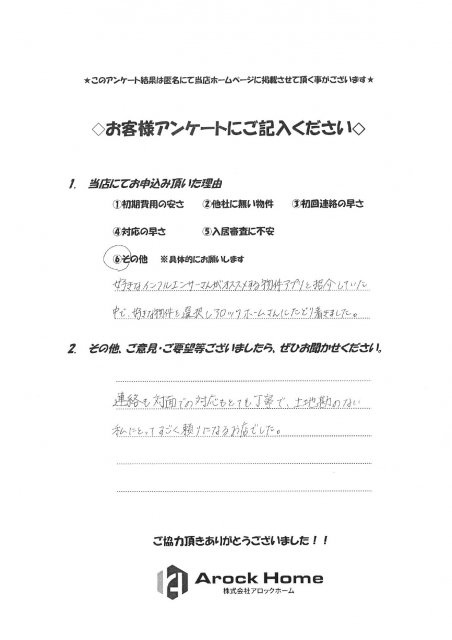 ★このアンケート結果は匿名にて当店ホームページに掲載させて頂く事がございます★
◇お客様アンケートにご記入ください◇
1. 当店にてお申込み頂いた理由
①初期費用の安さ ②他社に無い物件 ③初回連絡の早さ
④対応の早さ ⑤入居審査に不安
⑥その他 ※具体的にお願いします
好きなインフルエンサーさんがオススメする物件アプリを紹介していた
中で、好きな物件を選択しアロックホームさんにたどり着きました。
2. その他、ご意見・ご要望等ございましたら、ぜひお聞かせください。
連絡も対面での対応もとても丁寧で、土地勘のない
私にとってすごく頼りになるお店でした。
ご協力頂きありがとうございました！！
Arock Home
株式会社アロックホーム